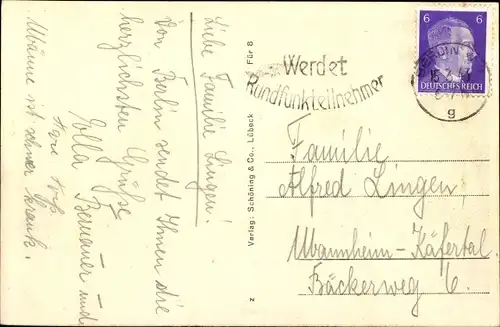 Liebe Familie Lingen!
Von Berlin sendet Ihnen die
herzlichsten Grüße
Ella Bernauer und
Männe ist schwer krank.
Verlag: Schöning & Co., Lübeck
Für 8
z
Werdet
Rundfunkteilnehmer
6 6
DEUTSCHES REICH
BERLIN
g
Familie
Alfred Lingen,
Mannheim-Käfertal
Bäckerweg 6.